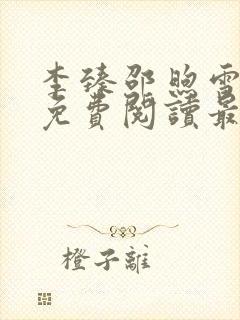 李臻邵煦雪
免費閱讀最
橙子離